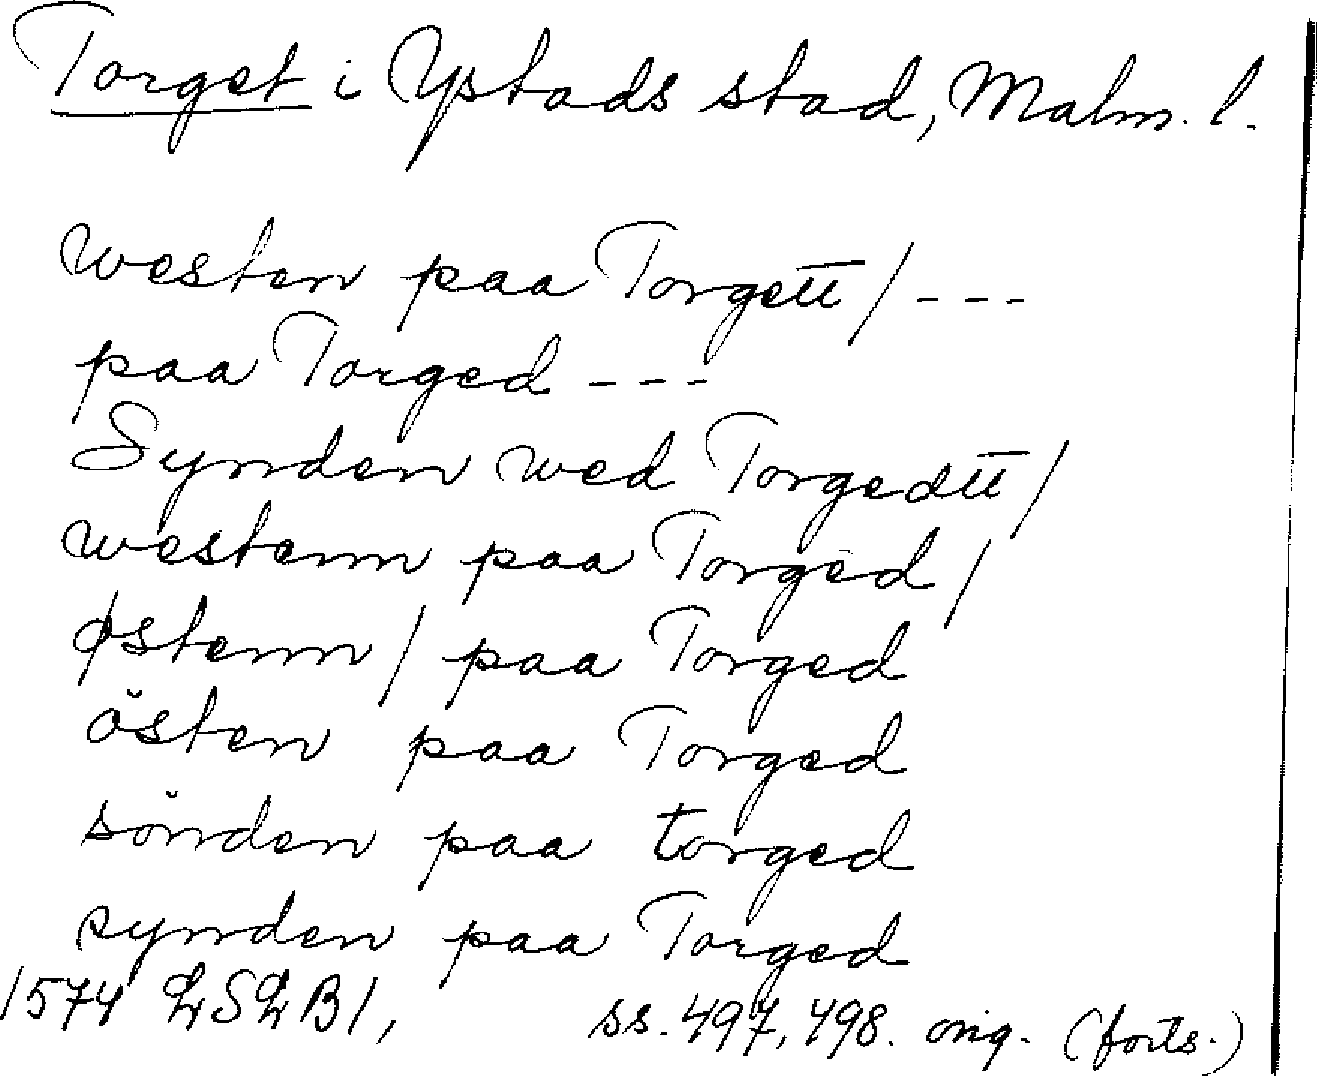 Torget i Ystads stad, Malm. l.
westen paa Torgett / ---
paa Torged ---
Synden wed Torgedtt /
westenn paa Torged /
østenn / paa Torged
östen paa Torged
sönden paa torged
synden paa Torged
1574 LSLB1, ss. 497, 498. orig. (forts.)